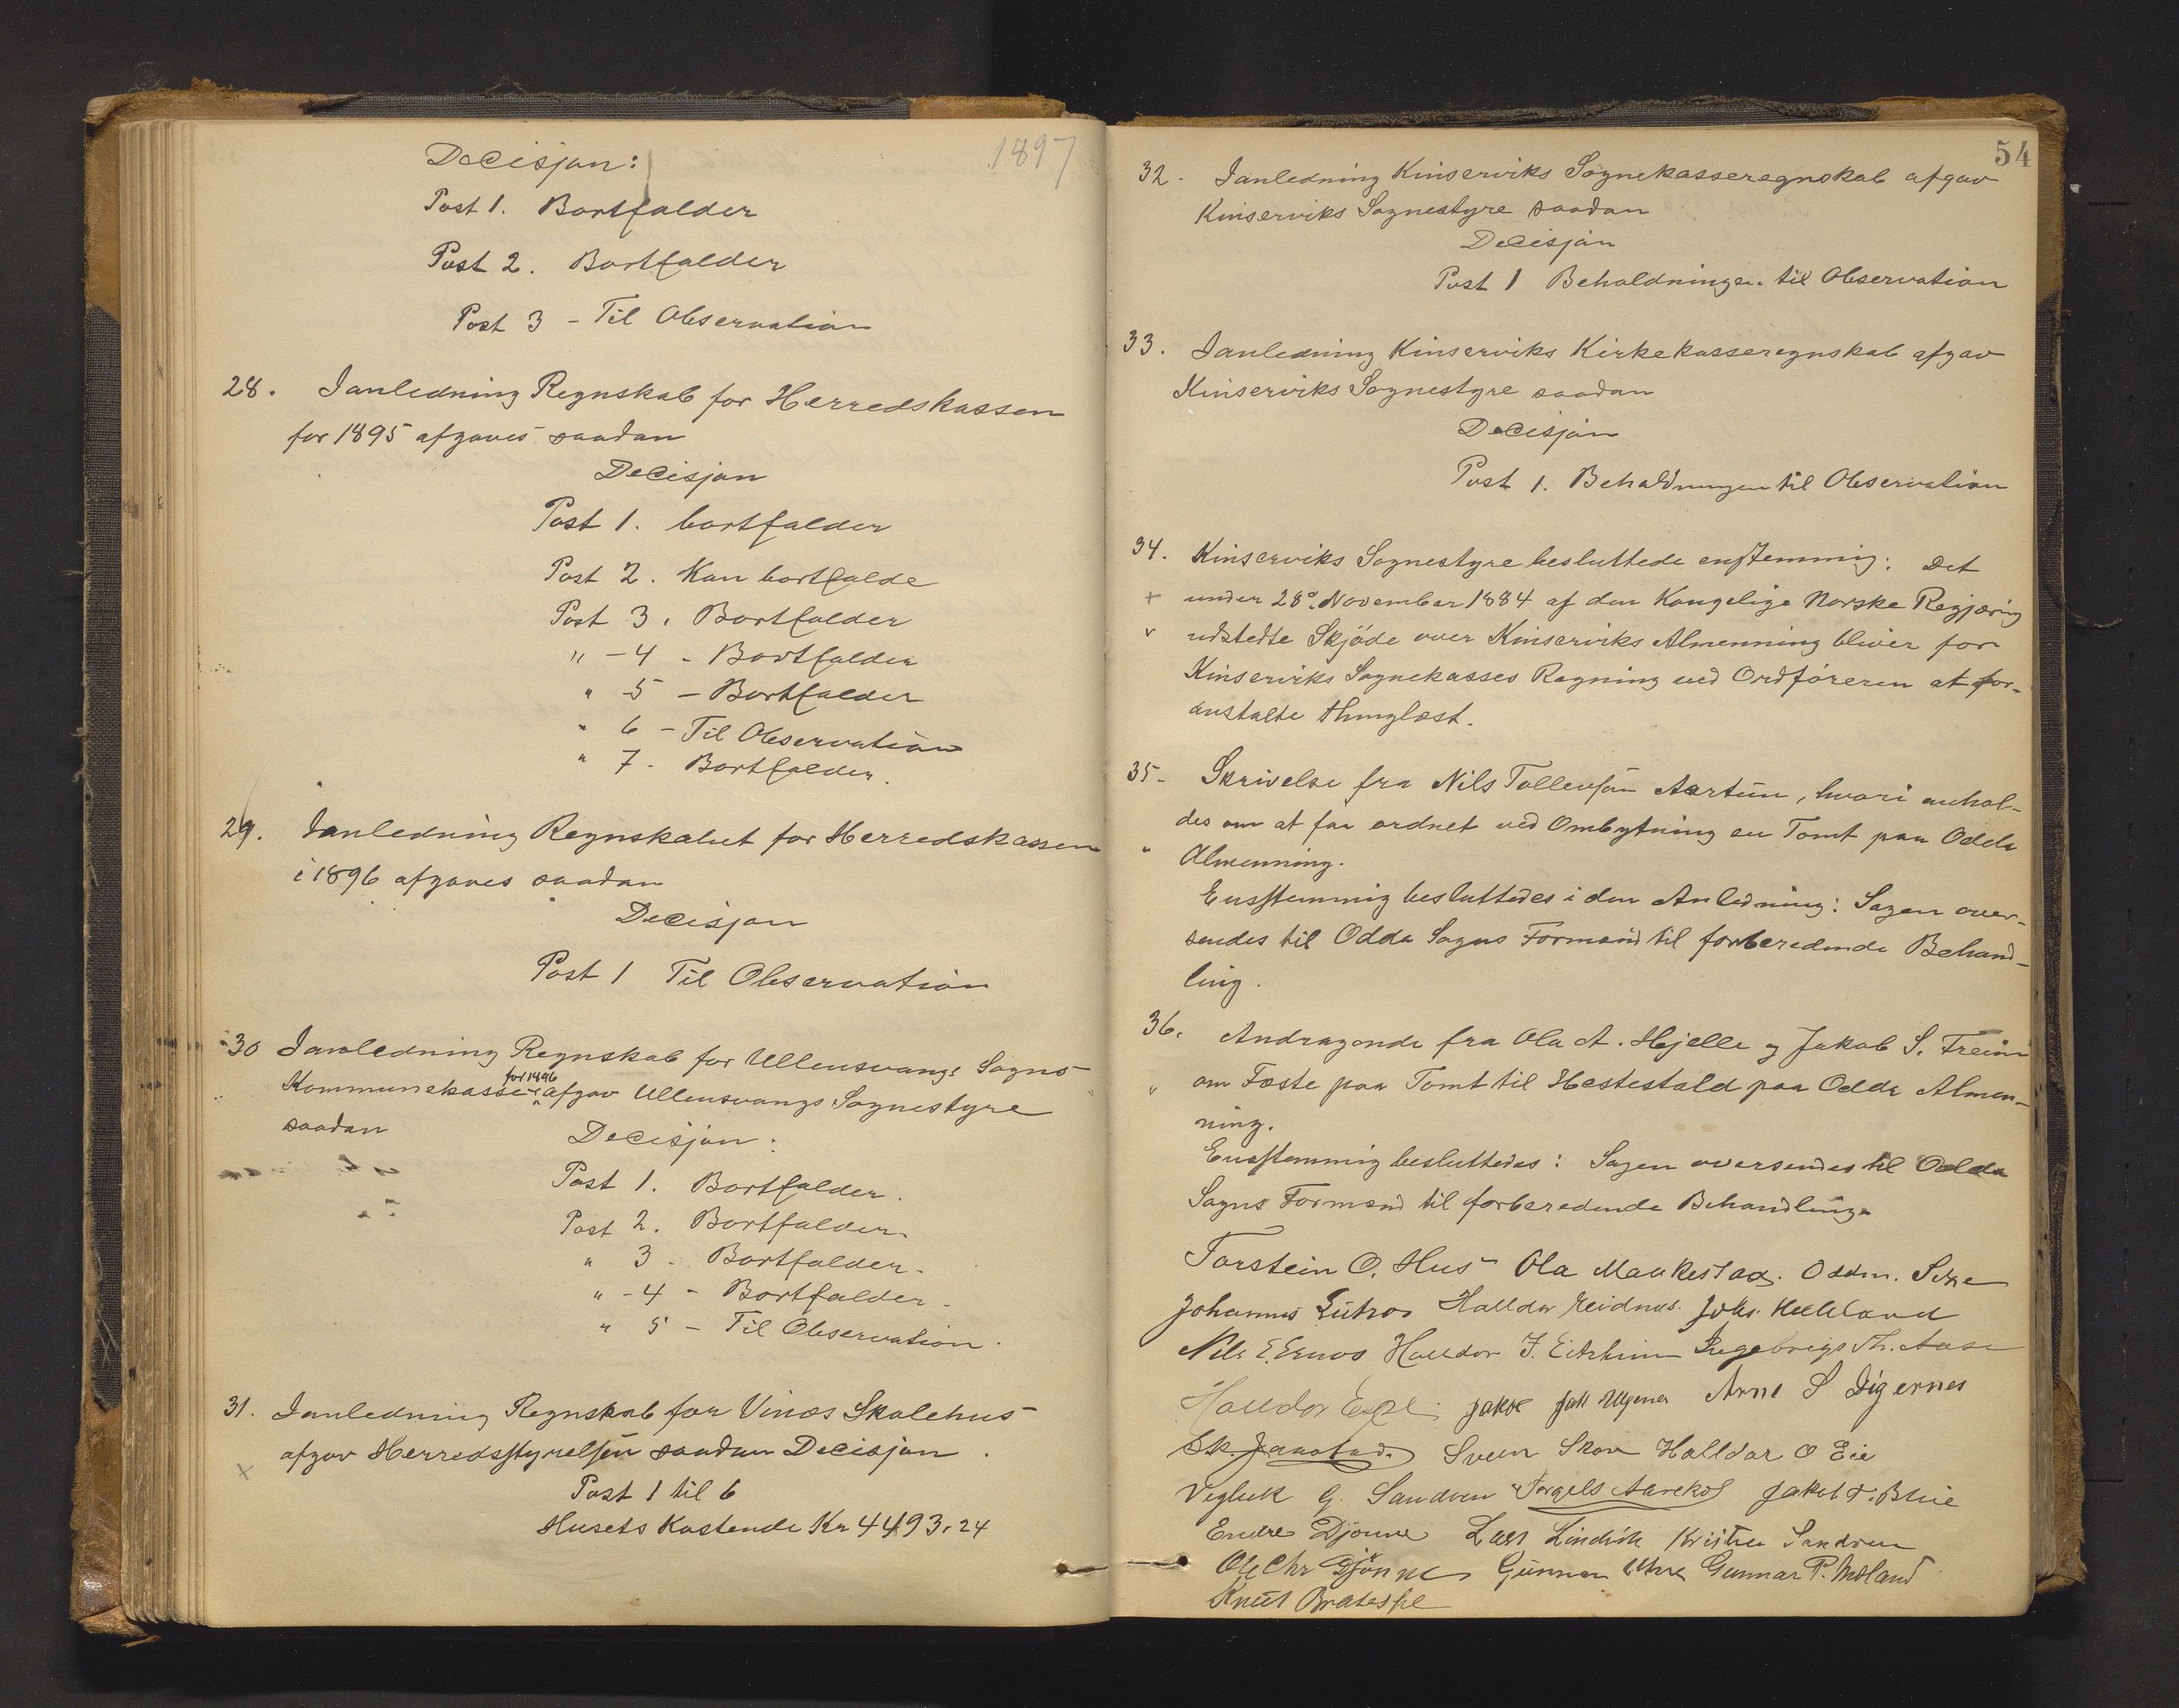 1897
Decisjon:
Post 1. Bortfalder
Post 2. Bortfalder
Post 3 - Til Observation
28. Ianledning Regnskab for Herredskassen
for 1895 afgaves saadan
Decisjon
Post 1. bortfalder
Post 2. Kan bortfalde
Post 3. Bortfalder
" - 4 - Bortfalder
" - 5 - Bortfalder
" 6 - Til Observation
" 7 - Bortfalder.
29. Ianledning Regnskabet for Herredskassen
i 1896 afgaves saadan
Decisjon
Post 1 Til Observation
30 Ianledning Regnskab for Ullensvangs Sogns
for 1896
Kommunekasse afgav Ullensvangs Sognestyre
saadan
Decisjon:
Post 1. Bortfalder.
Post 2. Bortfalder.
" 3 - Bortfalder.
" - 4 - Bortfalder.
" 5 - Til Observation.
31. Ianledning Regnskab for Vinæs Skolehus
afgav Herredsstyrelsen saadan Decisjon.
x
Post 1 til 6
Husets Kostende Kr 4493.24
54
32. Ianledning Kinserviks Sognekasseregnskab afgav
Kinserviks Sognestyre saadan
Decisjon
Post 1 Beholdningen til Observation
33. Ianledning Kinserviks Kirkekasseregnskab afgav
Kinserviks Sognestyre saadan
Decisjon
Post 1. Beholdningen til Observation
34. Kinserviks Sognestyre besluttede enstemmig: Det
+ under 28de November 1884 af den Kongelige Norske Regjæring
v udstedte Skjöde over Kinserviks Almenning bliver for
Kinserviks Sognekasses Regning ved Ordföreren at for-
anstalte thinglæst.
35 - Skrivelse fra Nils Tollevsön Aartun, hvori anhol-
des om at faa ordnet ved Ombytning en Tomt paa Odda
" Almenning.
Ensstemmig besluttedes i den Anledning: Sagen over-
sendes til Odda Sogns Formænd til forberedende Behand-
ling.
36. Andragende fra Ola A. Hjelle og Jakob S. Freim
" om Fæste paa Tomt til Hestestald paa Odda Almen-
ning.
Ensstemmig besluttedes: Sagen oversendes til Odda
Sogns Formænd til forberedende Behandling.
Torstein O. Hus Ola Maakestad. Oddm.
Johannes Lutro Halldor Reidnæs. Johs.
Nils E. Halldor J. Eitrheim Th. Aase
Halldor Jakob Arne S Digernes
Svein Halldor O Eie
Vigleik G. Sandven Torgels Jakob
Endre Djönne Lars Kristen Sandven
Ole Chr Djönne Gunnar Gunnar P.
Knut